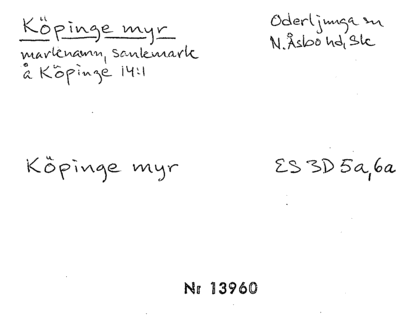 Köpinge myr
marknamn, sankmark
å Köpinge 14:1
Oderljunga sn
N. Åsbo hd, Sk
Köpinge myr
ES 3D 5a, 6a
Nr 13960